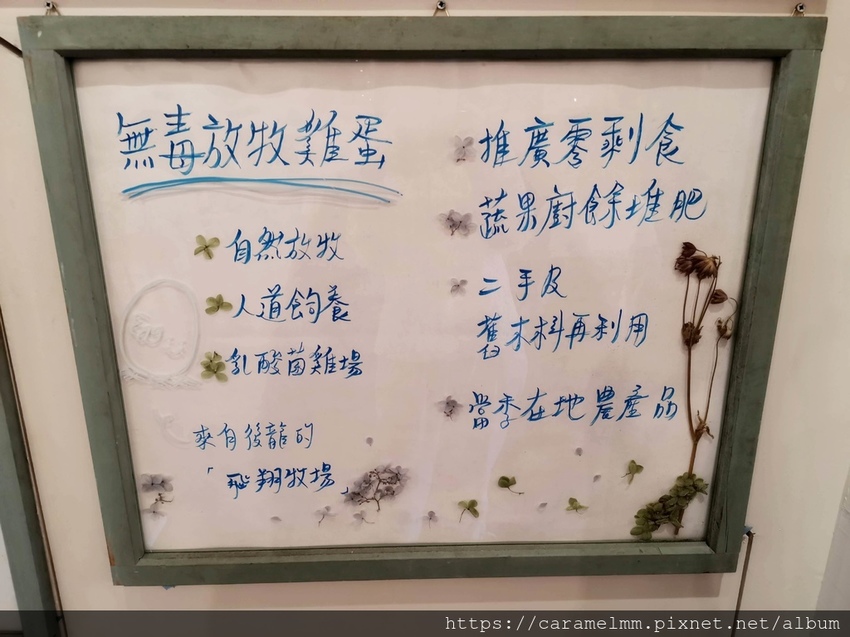 無毒放牧雞蛋
自然放牧
人道飼養
乳酸菌雞場
來自後龍的
「飛翔牧場」
推廣零剩食
蔬果廚餘堆肥
二手皮
舊木料再利用
當季在地農產品
https://caramelmm.pixnet.net/album